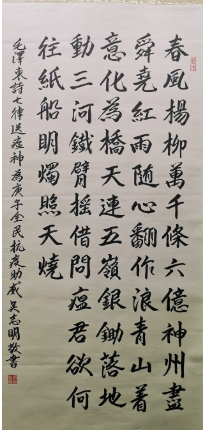 春風楊柳萬千條六億神州盡
舜堯紅雨隨心翻作浪青山着
意化為橋天連五嶺銀鋤落地
動三河鐵臂搖借問瘟君欲何
往紙船明燭照天燒
毛澤東詩七律送瘟神為庚子全民抗疫助威吳志明敬書